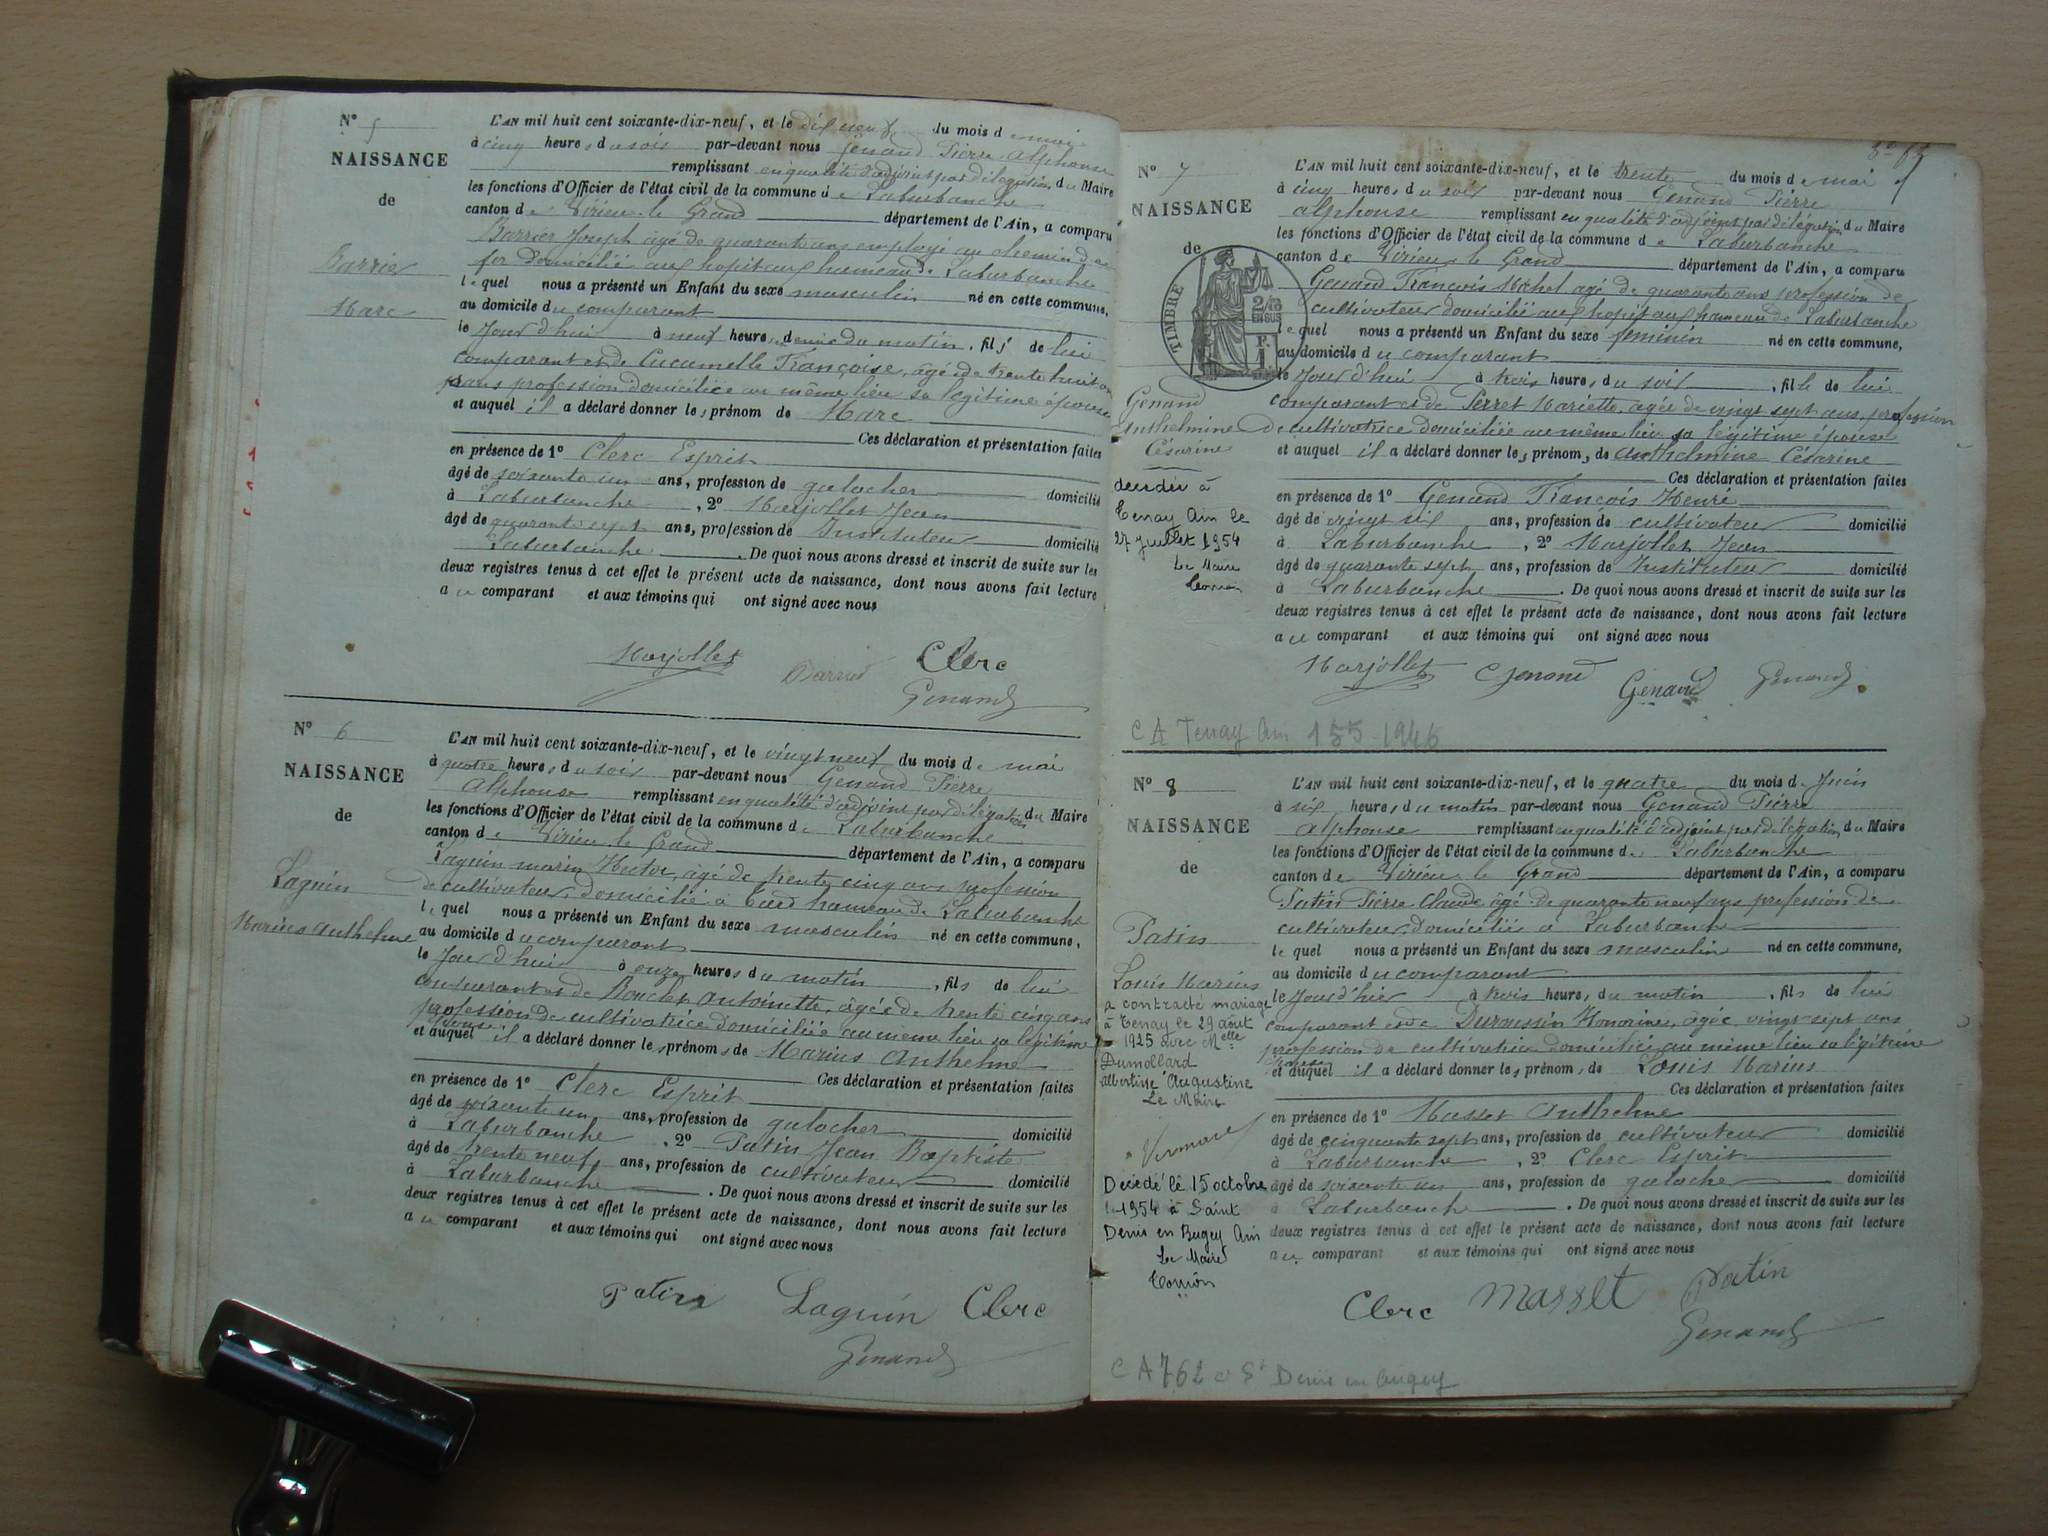 N° 5
NAISSANCE
de
Barrier
Marc
L'AN mil huit cent soixante-dix-neuf, et le dix neuf du mois de mai
à cinq heures du soir par-devant nous Genand Pierre Alphonse
remplissant en qualité d'adjoint par délégation du Maire
les fonctions d'Officier de l'état civil de la commune de Laburbanche
canton de Virieu le Grand département de l'Ain, a comparu
Barrier Joseph âgé de quarante ans employé au chemin de
fer domicilié aux hopitaux hameau de Laburbanche
lequel nous a présenté un Enfant du sexe masculin né en cette commune,
au domicile du comparant
le Jour d'hui à neuf heures demie du matin, fils de lui
comparant et de Françoise, agée de trente huit ans
sans profession domiciliée au même lieu sa légitime épouse
et auquel il a déclaré donner les prénom de Marc
Ces déclaration et présentation faites
en présence de 1° Clerc Esprit
âgé de soixante un ans, profession de galocher domicilié
à Laburbanche, 2° Marjollet Jean
âgé de quarante sept ans, profession de Instituteur domicilié
Laburbanche. De quoi nous avons dressé et inscrit de suite sur les
deux registres tenus à cet effet le présent acte de naissance, dont nous avons fait lecture
a ce comparant et aux témoins qui ont signé avec nous
Marjollet Barrier Clerc
Genand
N° 6
NAISSANCE
de
Laguin
Marius Anthelme
L'AN mil huit cent soixante-dix-neuf, et le vingt neuf du mois de mai
à quatre heures du soir par-devant nous Genand Pierre
Alphonse remplissant en qualité d'adjoint par délégation du Maire
les fonctions d'Officier de l'état civil de la commune de Laburbanche
canton de Virieu le Grand département de l'Ain, a comparu
Laguin marin Hector, âgé de trente cinq ans profession
de cultivateur, domicilié à hameau de Laburbanche
lequel nous a présenté un Enfant du sexe masculin né en cette commune,
au domicile du comparant
le Jour d'hui à onze heures du matin, fils de lui
comparant et de Antoinette, âgée de trente cinq ans
profession de cultivatrice domiciliée au même lieu sa légitime
épouse
et auquel il a déclaré donner les prénoms de Marius Anthelme
Ces déclaration et présentation faites
en présence de 1° Clerc Esprit
âgé de soixante un ans, profession de galocher domicilié
à Laburbanche, 2° Patin Jean Baptiste
âgé de trente neuf ans, profession de cultivateur domicilié
à Laburbanche. De quoi nous avons dressé et inscrit de suite sur les
deux registres tenus à cet effet le présent acte de naissance, dont nous avons fait lecture
a ce comparant et aux témoins qui ont signé avec nous
Patin Laguin Clerc
Genand
N° 7
NAISSANCE
de
TIMBRE
2/10 EN SUS
Genand
Anthelmine
Césarine
décédée à
Tenay Ain le
27 Juillet 1954
Le Maire
L'AN mil huit cent soixante-dix-neuf, et le trente du mois de mai
à cinq heures du soir par-devant nous Genand Pierre
alphonse remplissant en qualité d'adjoint par délégation du Maire
les fonctions d'Officier de l'état civil de la commune de Laburbanche
canton de Virieu le Grand département de l'Ain, a comparu
Genand François Michel agé de quarante ans profession de
cultivateur domicilié aux hopitaux hameau de Laburbanche
lequel nous a présenté un Enfant du sexe féminin né en cette commune,
au domicile du comparant
le Jour d'hui à trois heures du soir, fille de lui
comparant et de Perret Mariette, agée de vingt sept ans, profession
de cultivatrice domiciliée au même lieu sa légitime épouse
et auquel il a déclaré donner les prénoms de Anthelmine Césarine
Ces déclaration et présentation faites
en présence de 1° Genand François Henri
âgé de vingt six ans, profession de cultivateur domicilié
à Laburbanche, 2° Marjollet Jean
âgé de quarante sept ans, profession de Instituteur domicilié
à Laburbanche. De quoi nous avons dressé et inscrit de suite sur les
deux registres tenus à cet effet le présent acte de naissance, dont nous avons fait lecture
a ce comparant et aux témoins qui ont signé avec nous
Marjollet Genand Genand Genand
CA Tenay Ain 155-1946
N° 8
NAISSANCE
de
Patin
Louis Marius
a contracté mariage
à Tenay le 29 août
1925 avec Melle
Dumollard
Albertine Augustine
Le Maire
Décédé le 15 octobre
1954 à Saint
Denis en Bugey Ain
Le Maire
L'AN mil huit cent soixante-dix-neuf, et le quatre du mois de Juin
à six heures du matin par-devant nous Genand Pierre
Alphonse remplissant en qualité d'adjoint par délégation du Maire
les fonctions d'Officier de l'état civil de la commune de Laburbanche
canton de Virieu le Grand département de l'Ain, a comparu
Patin Pierre Claude âgé de quarante neuf ans profession de
cultivateur, domicilié à Laburbanche
lequel nous a présenté un Enfant du sexe masculin né en cette commune,
au domicile du comparant
le Jour d'hier à trois heures du matin, fils de lui
comparant et de Duroussin Honorine, âgée vingt sept ans
profession de cultivatrice domiciliée au même lieu sa légitime
épouse
et auquel il a déclaré donner les prénoms de Louis Marius
Ces déclaration et présentation faites
en présence de 1° Masset Anthelme
âgé de cinquante sept ans, profession de cultivateur domicilié
à Laburbanche, 2° Clerc Esprit
âgé de soixante un ans, profession de galocher domicilié
à Laburbanche. De quoi nous avons dressé et inscrit de suite sur les
deux registres tenus à cet effet le présent acte de naissance, dont nous avons fait lecture
a ce comparant et aux témoins qui ont signé avec nous
Clerc Masset Patin
Genand
CA 762 St Denis en Bugey